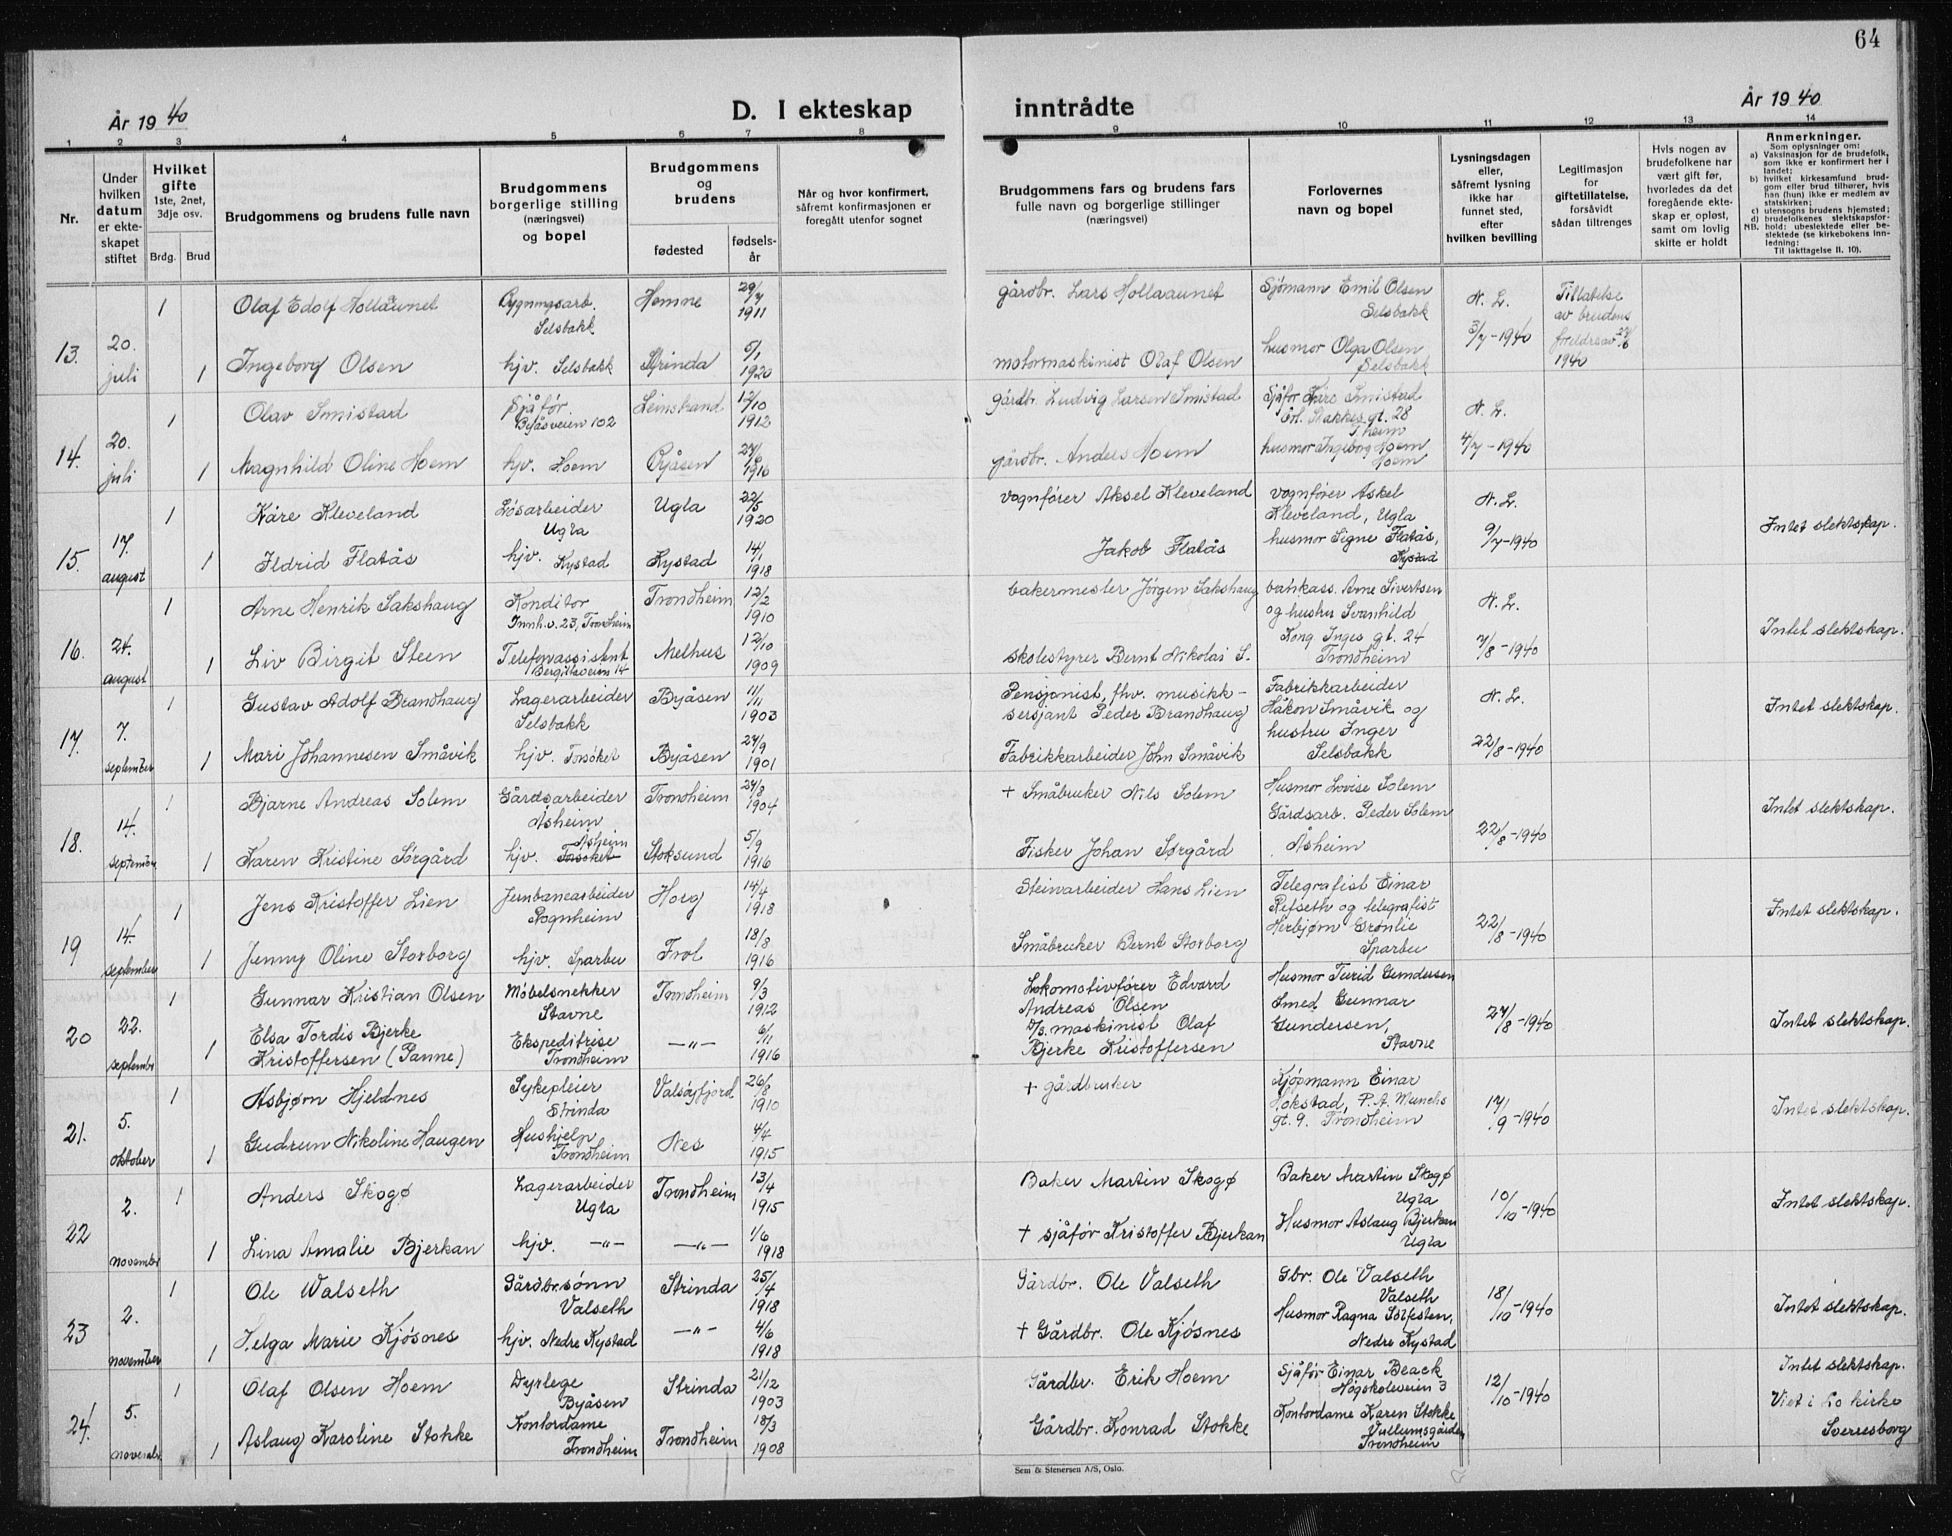 64
År 1940
D. I ekteskap inntrådte
År 1940
1 2 3 4 5 6 7 8 9 10 11 12 13 14
Nr.
Under hvilken datum er ekteskapet stiftet
Hvilket gifte 1ste, 2net, 3dje osv.
Brdg. Brud
Brudgommens og brudens fulle navn
Brudgommens borgerlige stilling (næringsvei) og bopel
Brudgommens og brudens
fødested
fødselsår
Når og hvor konfirmert, såfremt konfirmasjonen er foregått utenfor sognet
Brudgommens fars og brudens fars fulle navn og borgerlige stillinger (næringsvei)
Forlovernes navn og bopel
Lysningsdagen eller, såfremt lysning ikke har funnet sted, efter hvilken bevilling
Legitimasjon for giftetillatelse, forsåvidt sådan tiltrenges
Hvis nogen av brudefolkene har vært gift før, hvorledes da det foregående ekteskap er opløst, samt om lovlig skifte er holdt
Anmerkninger.
Som oplysninger om:
a) Vaksinasjon for de brudefolk, som ikke er konfirmert her i landet;
b) hvilket kirkesamfund brudgom eller brud tilhører, hvis han (hun) ikke er medlem av statskirken;
c) utensogns brudens hjemsted;
d) brudefolkenes slektskapsforhold: ubeslektede eller beslektede (se kirkebokens innledning:
NB.
Til iakttagelse II. 10).
13. 20. juli
1 Olaf Edolf Hollaunet Bygningsarb. Selsbakk Hemne 29/7 1911 gårdbr. Lars Hollaaunet Sjømann Emil Olsen Selsbakk N. L. 3/7-1940 Tillatelse av brudens foreldre av 1940
1 Ingeborg Olsen hjv. Selsbakk Strinda 5/1 1920 motormaskinist Olaf Olsen husmor Olga Olsen Selsbakk
14. 20. juli
1 Olav Smistad Sjåfør Byåsveien 102 Leinstrand 12/10 1912 gårdbr. Ludvig Larsen Smistad Sjåfør Kåre Smistad Erl. Skakkes gt. 28 T.heim N. L. 4/7-1940
1 Magnhild Oline Hoem hjv. Hoem Byåsen 24/6 1916 gårdbr. Anders Hoem husmor Ingeborg Hoem Hoem
15. 17. august
1 Kåre Kleveland Løsarbeider Ugla Ugla 22/5 1920 vognfører Aksel Kleveland vognfører Askel Kleveland, Ugla N. L. 9/7-1940 Intet slektskap.
1 Ildrid Flatås hjv. Kystad Kystad 14/1 1918 Jakob Flatås husmor Signe Flatås, Kystad
16. 24. august
1 Arne Henrik Sakshaug Konditor Innh.v. 23, Trondheim Trondheim 12/2 1910 bakermester Jörgen Sakshaug bankkass. Arne Sivertsen og hustru Svanhild N. L. 7/8-1940 Intet slektskap.
1 Liv Birgit Steen Telefonassistent Bergstaveien 14 Melhus 12/10 1909 skolestyrer Bernt Nikolai S. Kong Inges gt. 24 Trondheim
17. 7. september
1 Gustav Adolf Brandhaug Lagerarbeider Selsbakk Byåsen 11/11 1903 Pensjonist, fhv. musikk-sersjant Peder Brandhaug Fabrikkarbeider Håkon Småvik og hustru Inger Selsbakk N. L. 22/8-1940 Intet slektskap.
1 Mari Johannesen Småvik hjv. Forsöket Byåsen 24/9 1901 Fabrikkarbeider John Småvik
18. 14. september
1 Bjarne Andreas Solem Gårdsarbeider Åsheim Trondheim 24/8 1904 + Småbruker Nils Solem Husmor Lovise Solem Gårdsarb. Peder Solem Åsheim 22/8-1940 Intet slektskap.
1 Karen Kristine Sørgård hjv. Åsheim Forsöket Stoksund 5/9 1916 Fisker Johan Sørgård
19 14. september
1 Jens Kristoffer Lien Jernbanearbeider Rognheim Horg 14/4 1918 Steinarbeider Hans Lien Telegrafist Einar Refseth og telegrafist Herbjørn Grønlie Sparbu 22/8-1940 Intet slektskap.
1 Jenny Oline Storborg hjv. Sparbu Frol 18/8 1916 Småbruker Bernt Storborg
20 22. september
1 Gunnar Kristian Olsen Møbelsnekker Stavne Trondheim 9/3 1912 Lokomotivfører Edvard Andreas Olsen Husmor Turid Gundersen Smed Gunnar Gundersen, Stavne 24/8-1940 Intet slektskap.
1 Elsa Tordis Bjerke Kristoffersen (Panne) Ekspeditrise Trondheim —"— 6/11 1916 D/s. maskinist Olaf Bjerke Kristoffersen
21. 5. oktober
1 Asbjørn Hjeldnes Sykepleier Strinda Valsøyfjord 26/8 1910 + gårdbruker Kjøpmann Einar Hokstad, P. A. Munchs gt. 9. Trondheim 17/9-1940 Intet slektskap.
1 Gudrun Nikoline Haugen Hushjelp Trondheim Nes 4/4 1915
22 2. november
1 Anders Skogø Lagerarbeider Ugla Trondheim 13/4 1915 Baker Martin Skogø Baker Martin Skogø Ugla 10/10-1940 Intet slektskap.
1 Lina Amalie Bjerkan hjv. —"— —"— 1/6 1918 + sjåfør Kristoffer Bjerkan Husmor Aslaug Bjerkan Ugla
23 2. november
1 Ole Walseth Gårdbr.sønn Valseth Strinda 25/4 1918 Gårdbr. Ole Valseth Gbr. Ole Valseth Valseth 18/10-1940 Intet slektskap.
1 Helga Marie Kjøsnes hjv. Nedre Kystad —"— 4/6 1918 + Gårdbr. Ole Kjøsnes Husmor Ragna Solfesten, Nedre Kystad
24. 5. november
1 Olaf Olsen Hoem Dyrlege Byåsen Strinda 21/12 1903 Gårdbr. Erik Hoem Sjåfør Einar Beack Høgskoleveien 3 12/10-1940 Intet slektskap. Viet i Lo kirke Sverresborg
1 Aslaug Karoline Stokke Kontordame Trondheim Trondheim 18/3 1908 Gårdbr. Konrad Stokke Kontordame Karen Stokke Vullumsgården Trondheim
Sem & Stenersen A/S, Oslo.